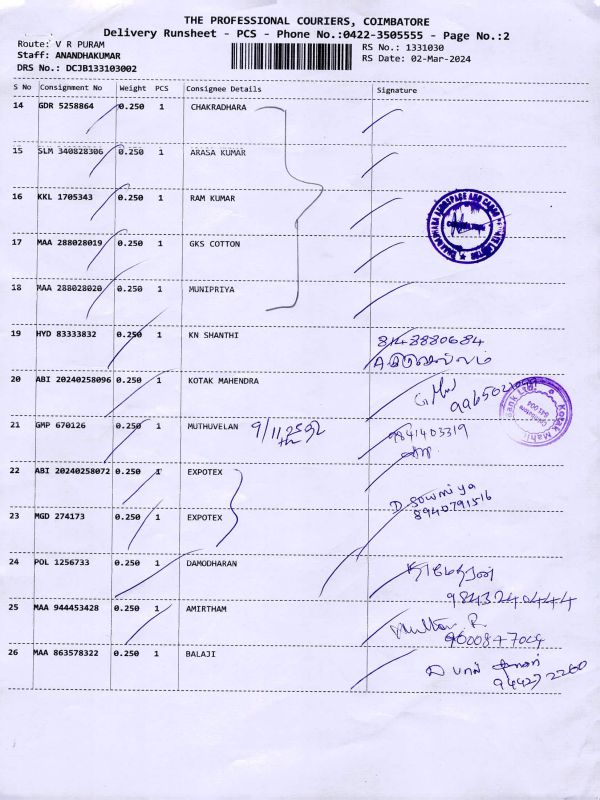 THE PROFESSIONAL COURIERS, COIMBATORE
Delivery Runsheet - PCS - Phone No.:0422-3505555 - Page No.:2
Route: V R PURAM RS No.: 1331030
Staff: ANANDHAKUMAR RS Date: 02-Mar-2024
DRS No.: DCJB133103002
S No Consignment No Weight PCS Consignee Details Signature
14 GDR 5258864 0.250 1 CHAKRADHARA
15 SLM 340828306 0.250 1 ARASA KUMAR
16 KKL 1705343 0.250 1 RAM KUMAR
17 MAA 288028019 0.250 1 GKS COTTON
18 MAA 288028020 0.250 1 MUNIPRIYA
19 HYD 83333832 0.250 1 KN SHANTHI 8148880684
20 ABI 20240258096 0.250 1 KOTAK MAHENDRA
21 GMP 670126 0.250 1 MUTHUVELAN 9841403319
22 ABI 20240258072 0.250 1 EXPOTEX D Sowmiya
8940791516
23 MGD 274173 0.250 1 EXPOTEX
24 POL 1256733 0.250 1 DAMODHARAN
9843240444
25 MAA 944453428 0.250 1 AMIRTHAM
26 MAA 863578322 0.250 1 BALAJI
9442722260